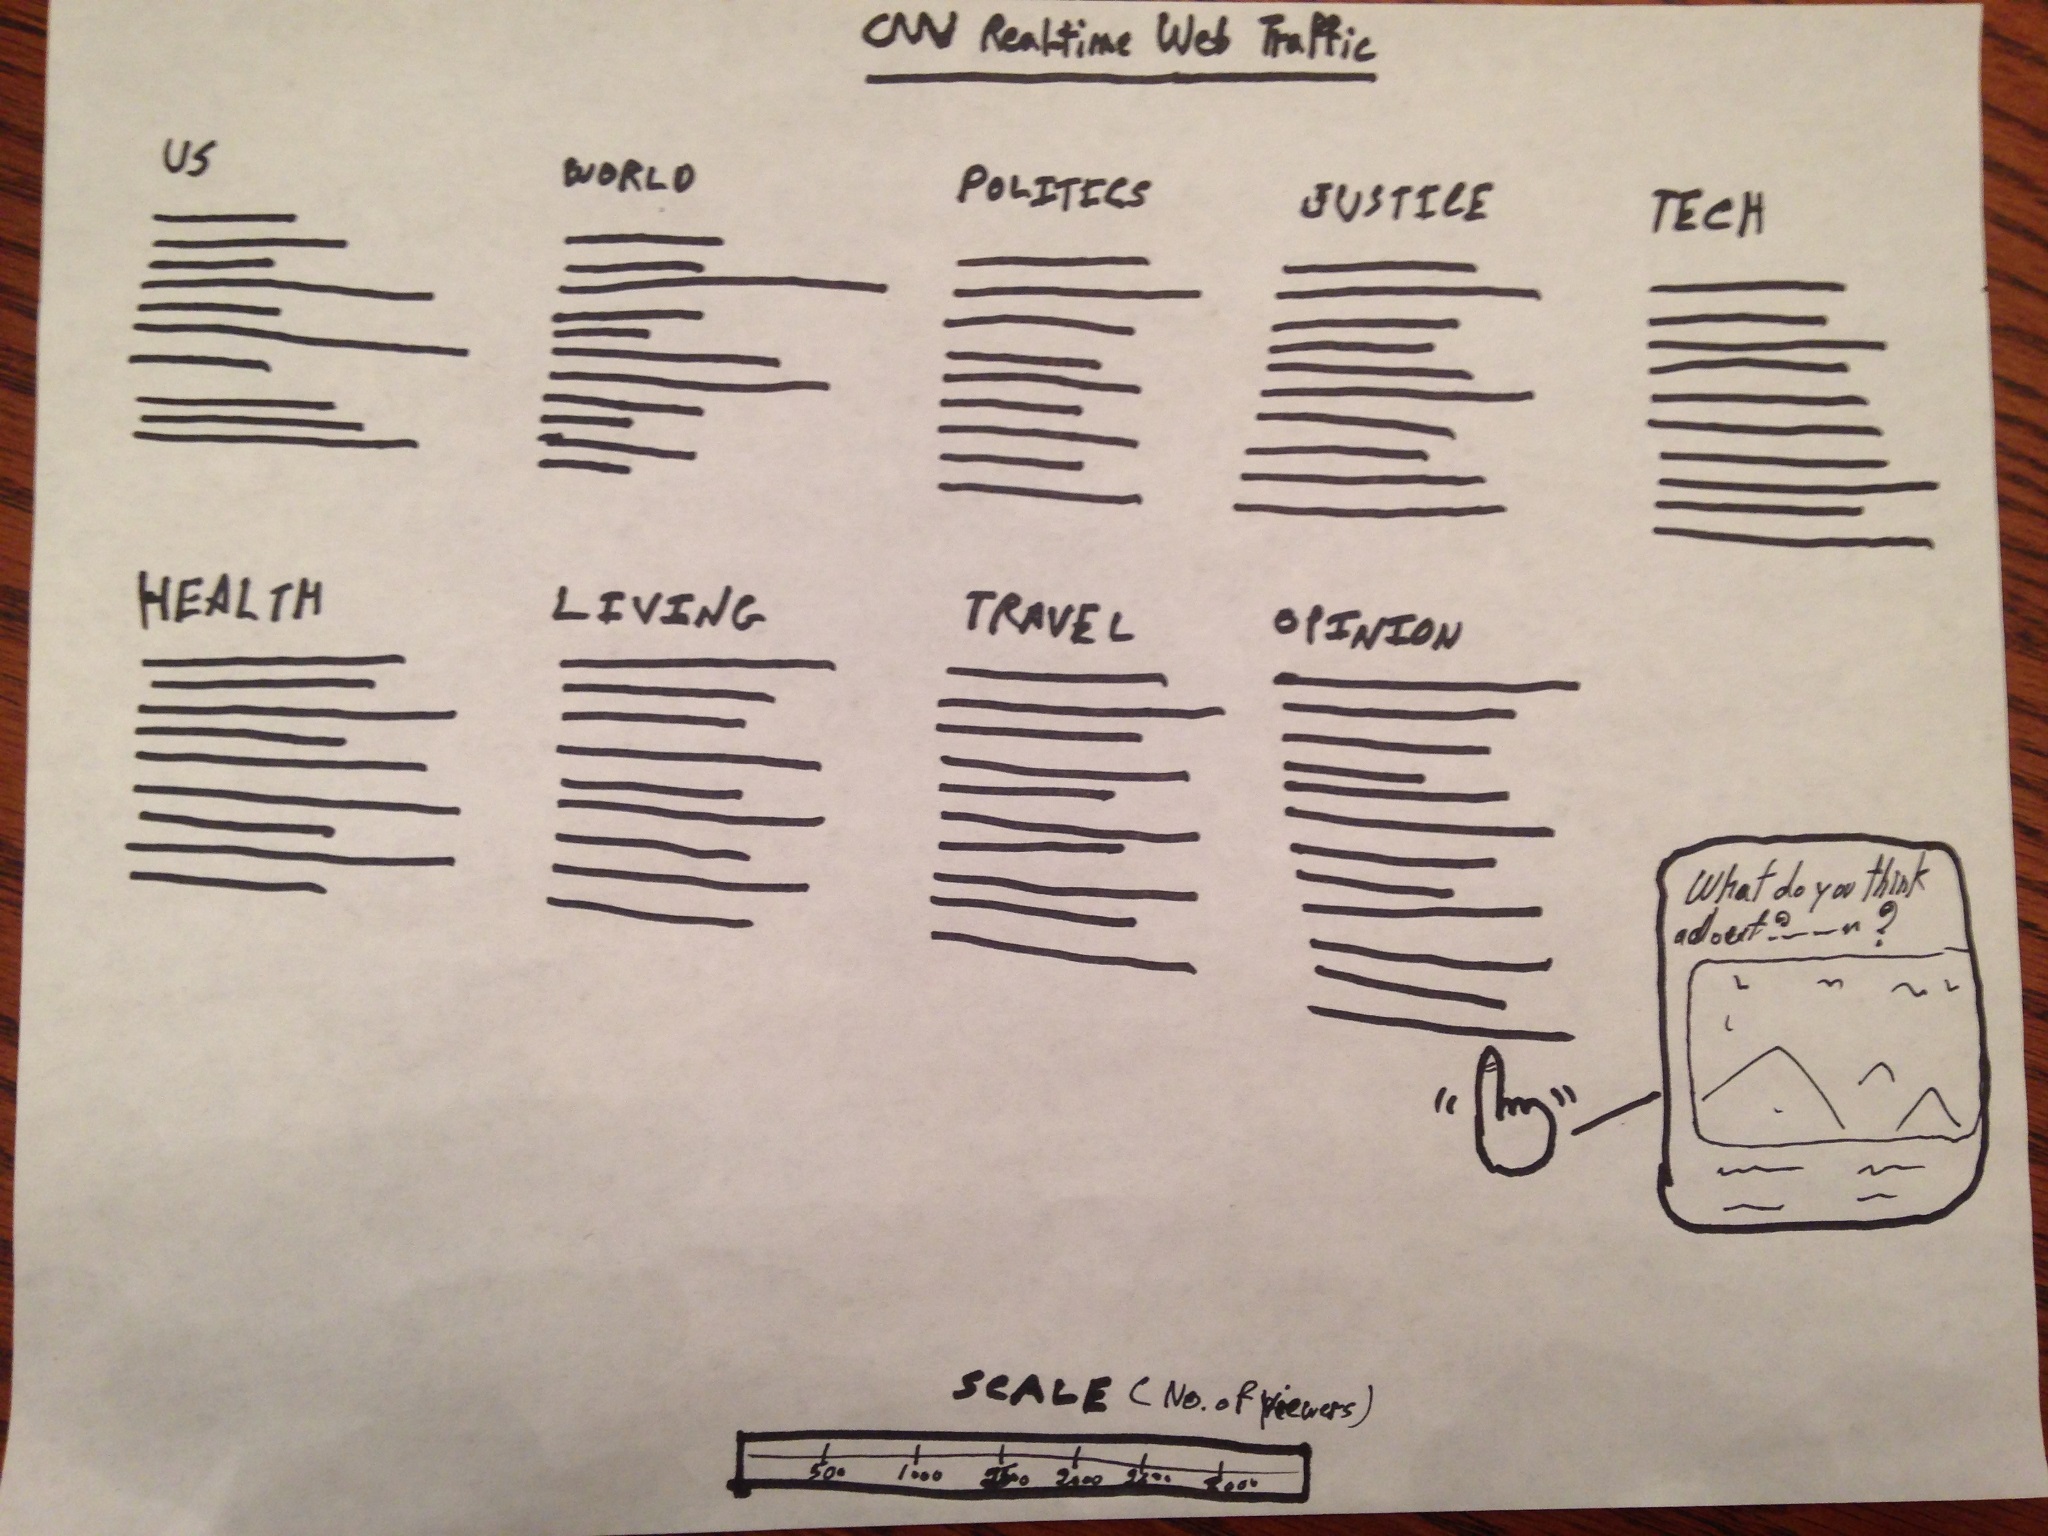 CNN Realtime Web Traffic
US WORLD POLITICS JUSTICE TECH
HEALTH LIVING TRAVEL OPINION
What do you think
SCALE (No. of Viewers)
500 1000 1500 2000 2500 3000